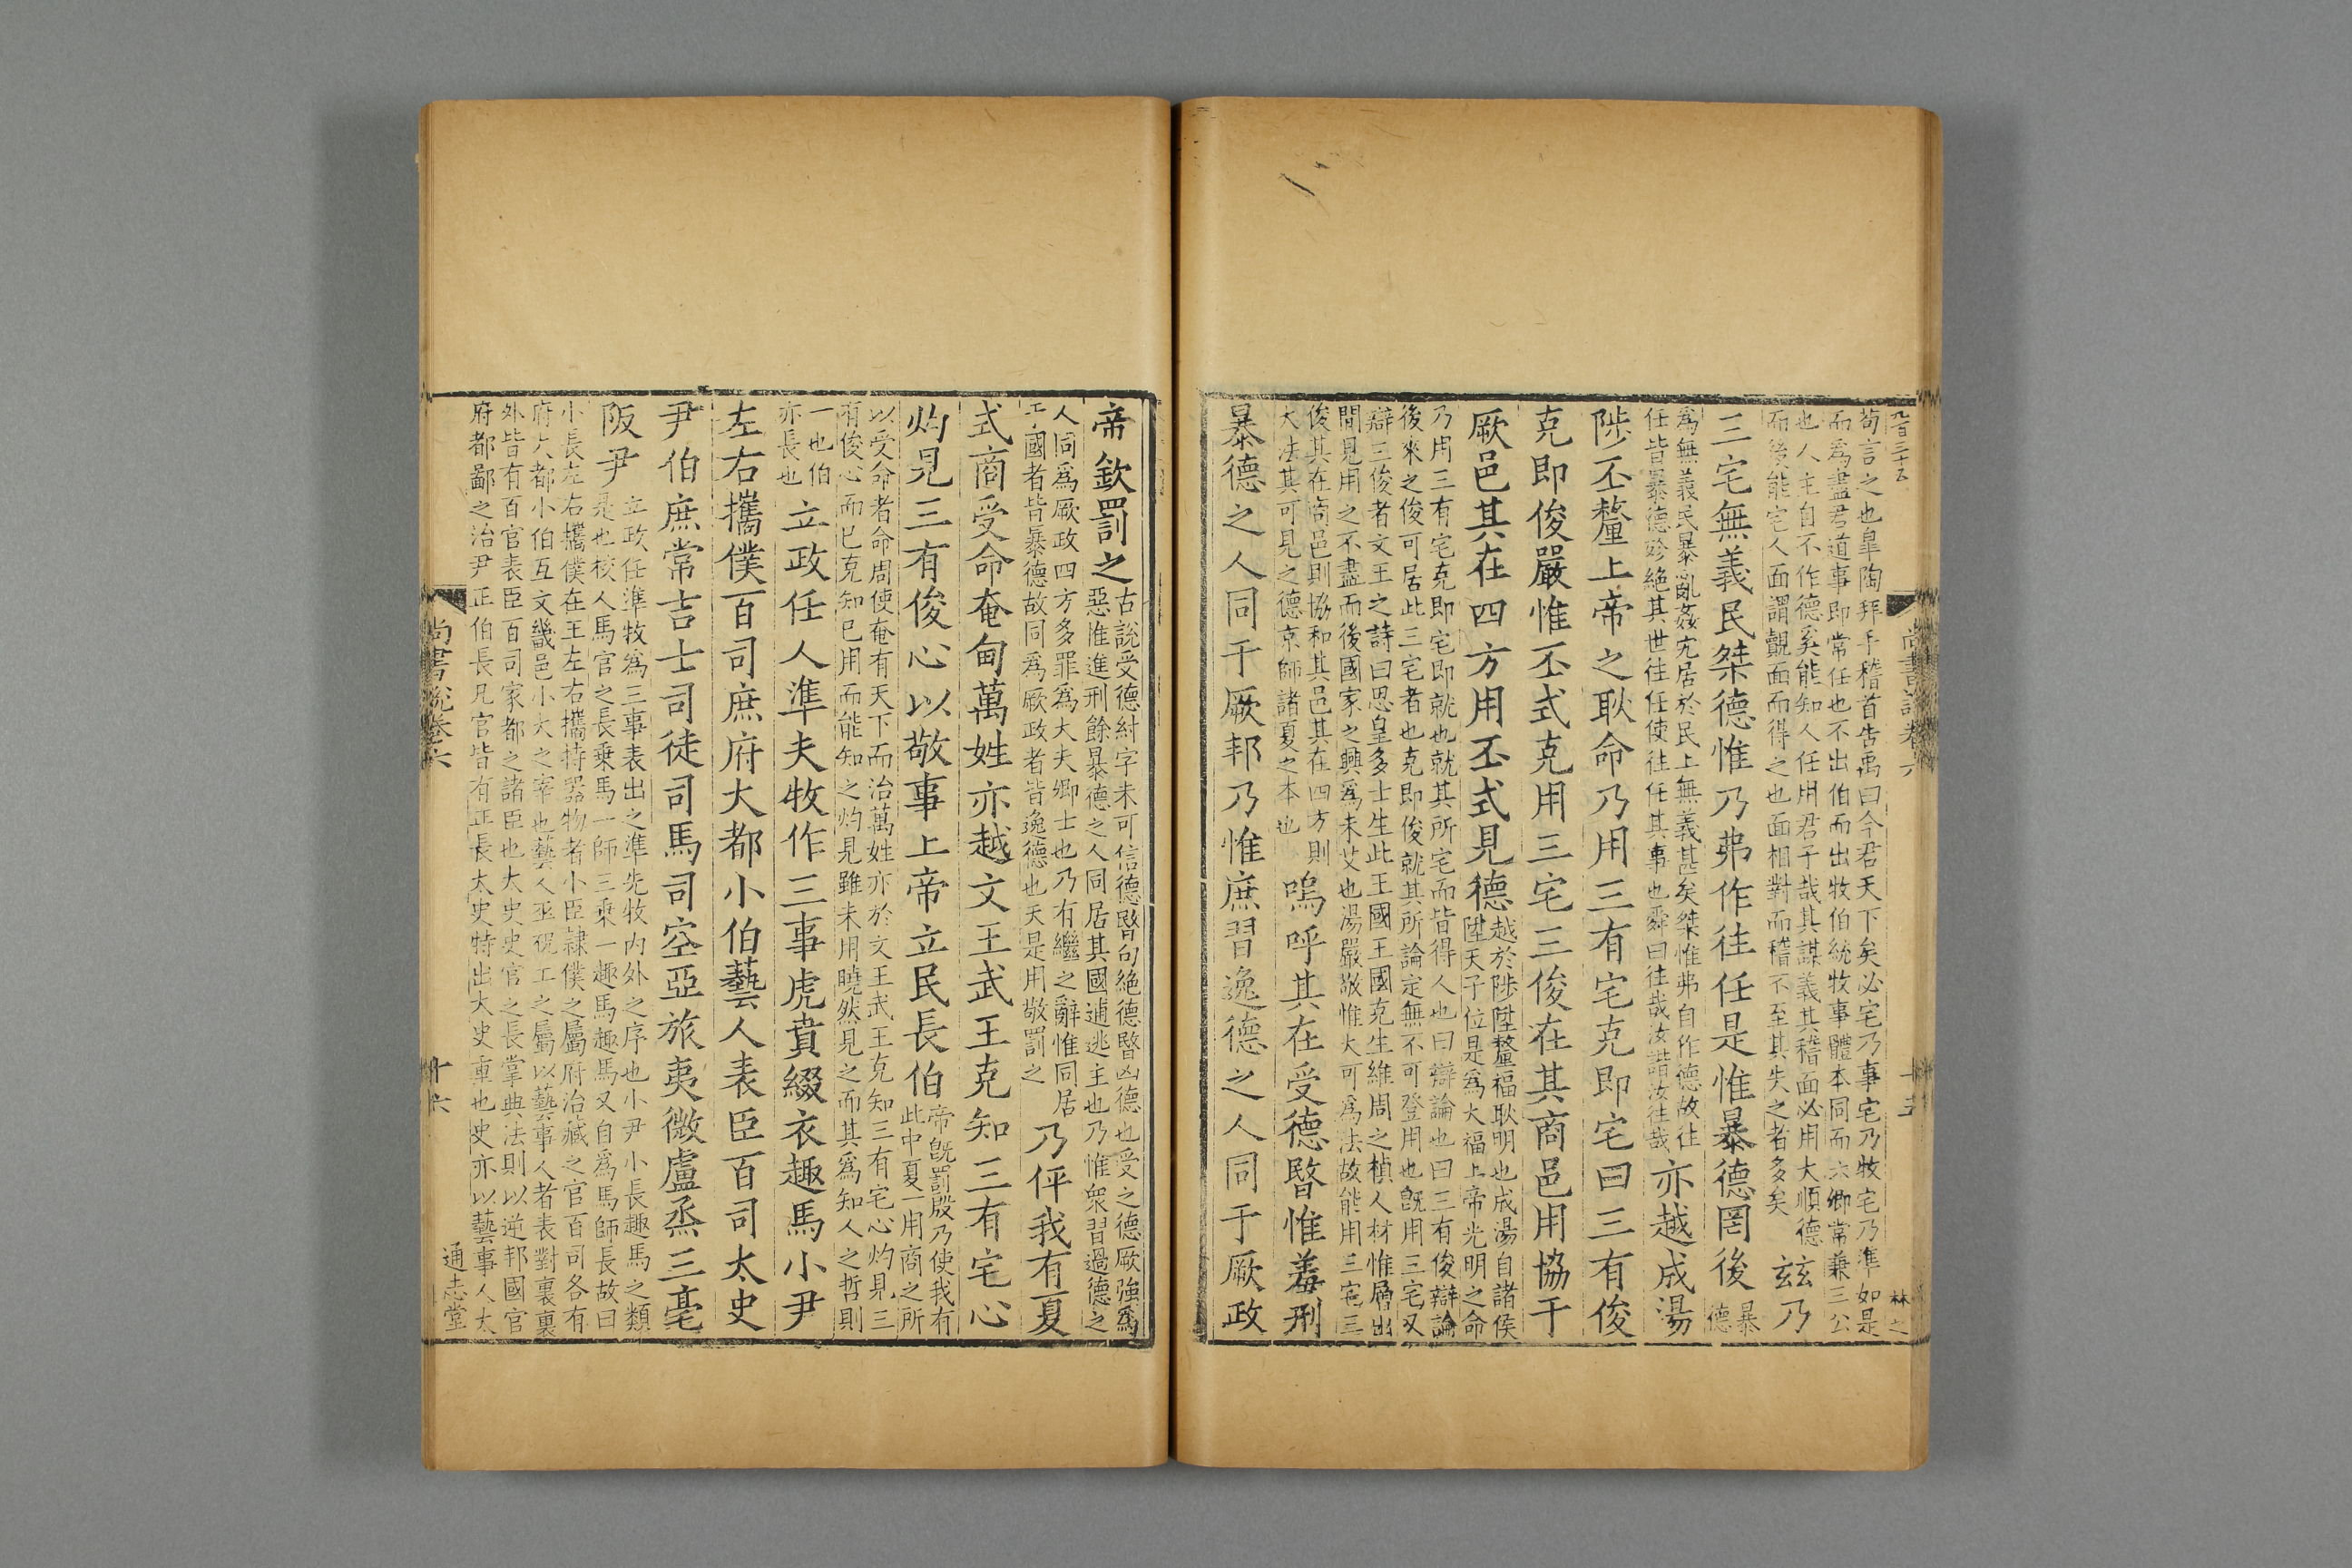 茍言之也皐陶拜手稽首告禹曰今君天下矣必宅乃事宅乃牧宅乃準如是
而爲盡君道事即常任也不出伯而出牧伯統牧事體本同而六卿常兼三公
也人主自不作德奚能知人任用君子哉其謀義其稽面必用大順德
而後能宅人面謂覿面而得之也面相對而稽不至其失之者多矣
茲乃
三宅無義民桀德惟乃弗作往任是惟暴德罔後
暴
德
爲無義民暴亂姦宄居於民上無義甚矣桀惟弗自作德故往
任皆暴德殄絶其世往任使往任其事也舜曰往哉汝諧汝往哉
亦越成湯
陟丕釐上帝之耿命乃用三有宅克即宅曰三有俊
克即俊嚴惟丕式克用三宅三俊在其商邑用協于
厥邑其在四方用丕式見德
越於陟陞釐福耿明也成湯自諸侯
陞天子位是爲大福上帝光明之命
乃用三有宅克即宅即就也就其所宅而皆得人也曰辯論也曰三有俊辯論
後來之俊可居此三宅者也克即俊就其所論定無不可登用也旣用三宅又
辯三俊者文王之詩曰思皇多士生此王國王國克生維周之楨人材惟層出
間見用之不盡而後國家之興爲未艾也湯嚴敬惟大可爲法故能用三宅三
俊其在商邑則協和其邑其在四方則
大法其可見之德京師諸夏之本也
嗚呼其在受德暋惟羞刑
暴德之人同于厥邦乃惟庶習逸德之人同于厥政
尚書說卷六
十五
林之
帝欽罰之
古說受德紂字未可信德暋句絶德暋凶德也受之德厥強爲
惡惟進刑餘暴德之人同居其國逋逃主也乃惟衆習過德之
人同爲厥政四方多罪爲大夫卿士也乃有繼之辭惟同居
工國者皆暴德故同爲厥政者皆逸德也天是用敬罰之
乃伻我有夏
式商受命奄甸萬姓亦越文王武王克知三有宅心
灼見三有俊心以敬事上帝立民長伯
帝旣罰殷乃使我有
此中夏一用商之所
以受命者命周使奄有天下而治萬姓亦於文王武王克知三有宅心灼見三
有俊心而已克知已用而能知之灼見雖未用曉然見之而其爲知人之哲則
一也伯
亦長也
立政任人準夫牧作三事虎賁綴衣趣馬小尹
左右攜僕百司庶府大都小伯藝人表臣百司太史
尹伯庶常吉士司徒司馬司空亞旅夷微盧烝三亳
阪尹
立政任準牧爲三事表出之準先牧內外之序也小尹小長趣馬之類
是也校人馬官之長乗馬一師三乗一趣馬趣馬又自爲馬師長故曰
小長左右攜僕在王左右攜持器物者小臣隷僕之屬府治藏之官百司各有
府大都小伯互文畿邑小大之宰也藝人巫祝工之屬以藝事人者表對裏裏
外皆有百官表臣百司家都之諸臣也大史史官之長掌典法則以逆邦國官
府都鄙之治尹正伯長凡官皆有正長太史特出大史重也史亦以藝事人太
尚書說卷六
十六
通志堂